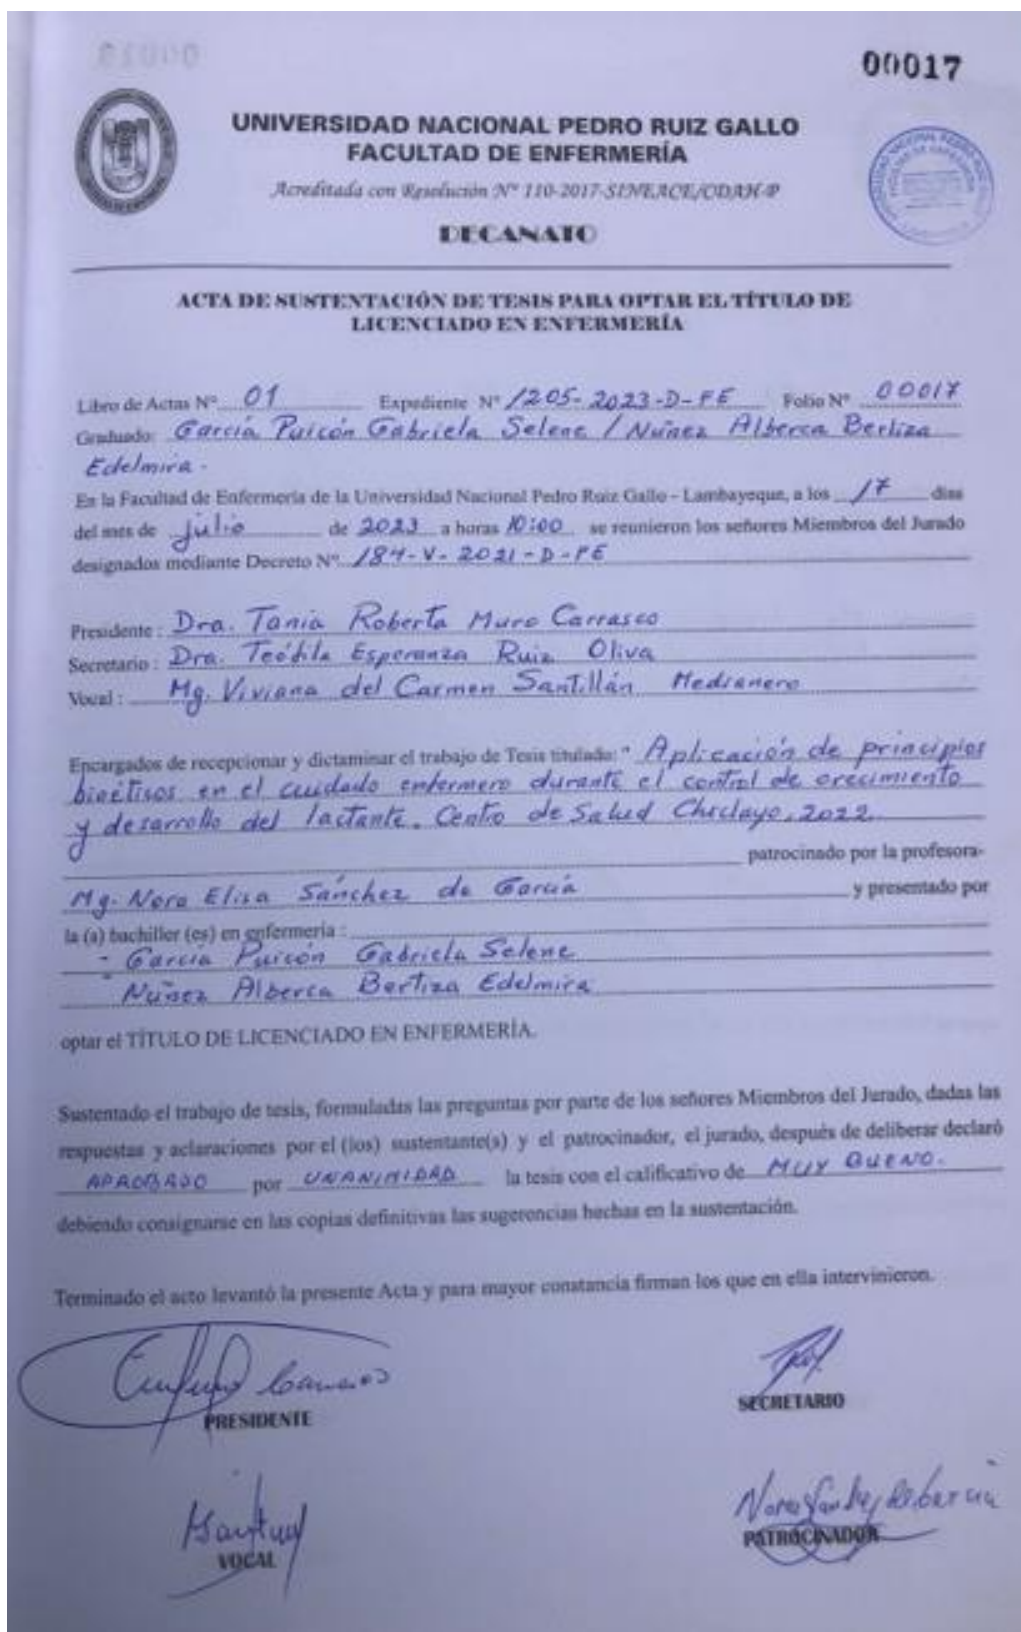 00017
UNIVERSIDAD NACIONAL PEDRO RUIZ GALLO
FACULTAD DE ENFERMERÍA
Acreditada con Resolución Nº 110-2017-SINEACE/CDAH-P
DECANATO
ACTA DE SUSTENTACIÓN DE TESIS PARA OPTAR EL TÍTULO DE
LICENCIADO EN ENFERMERÍA
Libro de Actas Nº 01 Expediente Nº 1205-2023-D-FE Folio Nº 00017
Graduado: García Puicón Gabriela Selene / Nuñez Alberca Bertiza
Edelmira.
En la Facultad de Enfermería de la Universidad Nacional Pedro Ruiz Gallo – Lambayeque, a los 17 días
del mes de julio de 2023 a horas 10:00 se reunieron los señores Miembros del Jurado
designados mediante Decreto Nº 184-V-2021-D-FE
Presidente : Dra. Tania Roberta Muro Carrasco
Secretario : Dra. Teófila Esperanza Ruiz Oliva
Vocal : Mg. Viviana del Carmen Santillán Medianero
Encargados de recepcionar y dictaminar el trabajo de Tesis titulado: " Aplicación de principios
bioéticos en el cuidado enfermero durante el control de crecimiento
y desarrollo del lactante. Centro de Salud Chiclayo, 2022.
patrocinado por la profesora-
Mg. Nora Elisa Sánchez de García y presentado por
la (a) bachiller (es) en enfermería :
- García Puicón Gabriela Selene
- Nuñez Alberca Bertiza Edelmira
optar el TÍTULO DE LICENCIADO EN ENFERMERÍA.
Sustentado el trabajo de tesis, formuladas las preguntas por parte de los señores Miembros del Jurado, dadas las
respuestas y aclaraciones por el (los) sustentante(s) y el patrocinador, el jurado, después de deliberar declaró
APROBADO por UNANIMIDAD la tesis con el calificativo de MUY BUENO.
debiendo consignarse en las copias definitivas las sugerencias hechas en la sustentación.
Terminado el acto levantó la presente Acta y para mayor constancia firman los que en ella intervinieron.
PRESIDENTE
SECRETARIO
VOCAL
PATROCINADOR